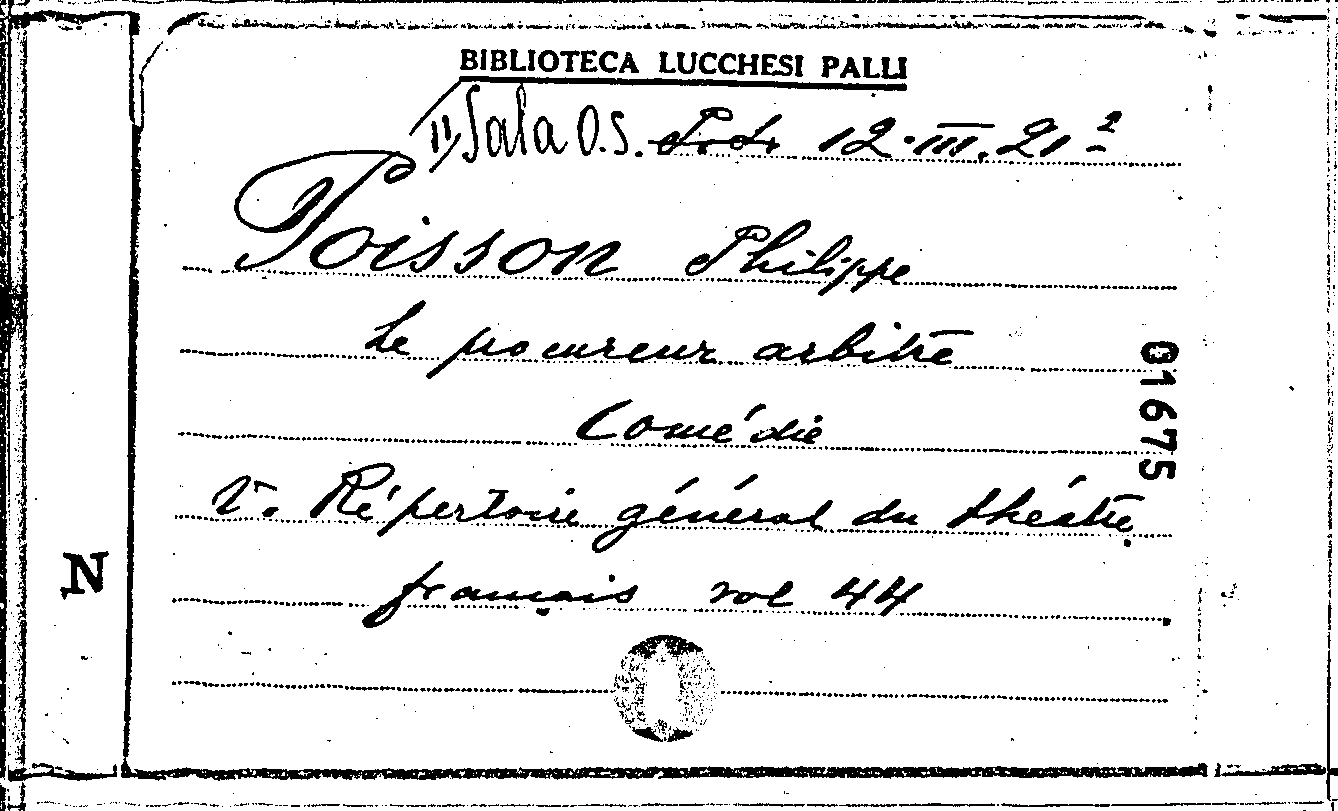 BIBLIOTECA LUCCHESI PALLI
II, Sala O.S. 12.III.21²
Poisson Philippe
Le procureur arbitre
Comédie
V. Répertoire général du théâtre
français vol 44
01675
N